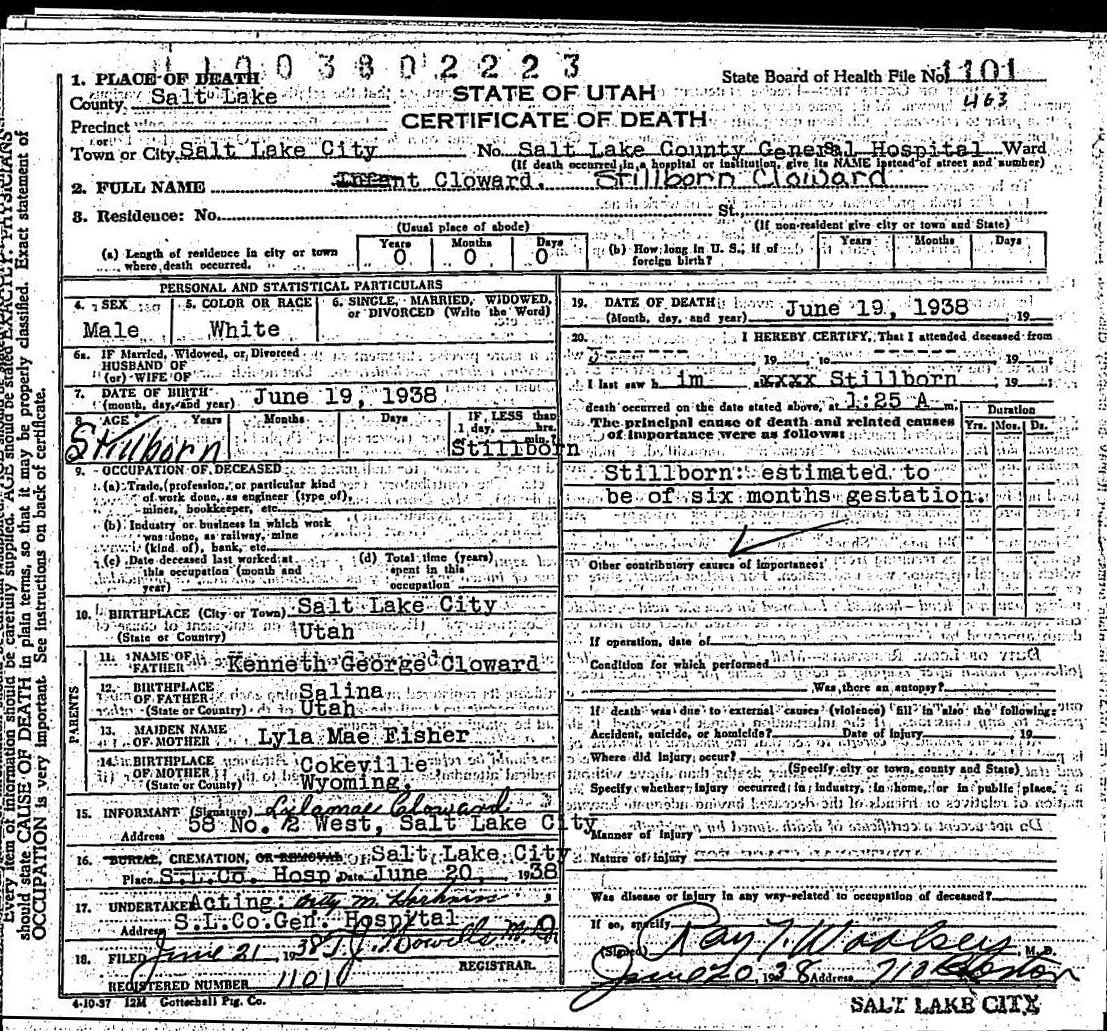 11003802223
1. PLACE OF DEATH
State Board of Health File No. 1101
County Salt Lake
STATE OF UTAH
463
Precinct
CERTIFICATE OF DEATH
or
Town or City Salt Lake City No. Salt Lake County General Hospital Ward
(If death occurred in a hospital or institution, give its NAME instead of street and number)
2. FULL NAME Infant Cloward. Stillborn Cloward
3. Residence: No. St.
(Usual place of abode) (If non-resident give city or town and State)
(a) Length of residence in city or town where death occurred. Years 0 Months 0 Days 0
(b) How long in U. S., if of foreign birth? Years Months Days
PERSONAL AND STATISTICAL PARTICULARS
4. SEX
Male
5. COLOR OR RACE
White
6. SINGLE, MARRIED, WIDOWED,
or DIVORCED (Write the Word)
6a. IF Married, Widowed, or Divorced
HUSBAND OF
(or) WIFE OF
7. DATE OF BIRTH
(month, day, and year) June 19, 1938
8. AGE Years Months Days IF LESS than
1 day, hrs.
min.?
Stillborn Stillborn
9. OCCUPATION OF DECEASED
(a) Trade, profession, or particular kind
of work done, as engineer (type of),
miner, bookkeeper, etc.
(b) Industry or business in which work
was done, as railway, mine
(kind of), bank, etc.
(c) Date deceased last worked at
this occupation (month and
year)
(d) Total time (years)
spent in this
occupation
10. BIRTHPLACE (City or Town) Salt Lake City
(State or Country) Utah
PARENTS
11. NAME OF
FATHER Kenneth George Cloward
12. BIRTHPLACE
OF FATHER Salina
(State or Country) Utah
13. MAIDEN NAME
OF MOTHER Lyla Mae Fisher
14. BIRTHPLACE
OF MOTHER Cokeville
(State or County) Wyoming.
15. INFORMANT (Signature) Lylamae Cloward
Address 58 No. 12 West, Salt Lake City
16. BURIAL, CREMATION, OR REMOVAL OF Salt Lake City
Place S.L.Co. Hosp Date June 20, 1938
17. UNDERTAKER Acting: M.
Address S.L.Co.Gen. Hospital
18. FILED June 21 1938 T.J. Howells M.D.
REGISTRAR.
REGISTERED NUMBER 1101
4-10-37 12M Gottschall Ptg. Co.
19. DATE OF DEATH
(Month, day, and year) June 19, 1938 19
20. I HEREBY CERTIFY, That I attended deceased from
19 to 19
I last saw h im xxxx Stillborn 19
death occurred on the date stated above, at 1:25 A m.
The principal cause of death and related causes
of importance were as follows:
Duration
Yrs. Mos. Ds.
Stillborn: estimated to
be of six months gestation.
Other contributory causes of importance:
If operation, date of
Condition for which performed
Was there an autopsy?
If death was due to external causes (violence) fill in also the following:
Accident, suicide, or homicide? Date of injury 19
Where did injury occur?
(Specify city or town, county and State)
Specify whether injury occurred in industry, in home, or in public place,
Manner of injury
Nature of injury
Was disease or injury in any way related to occupation of deceased?
If so, specify
(Signed) Ray T. Woolsey, M. D.
June 20, 1938 Address 710
SALT LAKE CITY
Every item of information should be carefully supplied. AGE should be stated EXACTLY. PHYSICIANS
should state CAUSE OF DEATH in plain terms, so that it may be properly classified. Exact statement of
OCCUPATION is very important. See instructions on back of certificate.